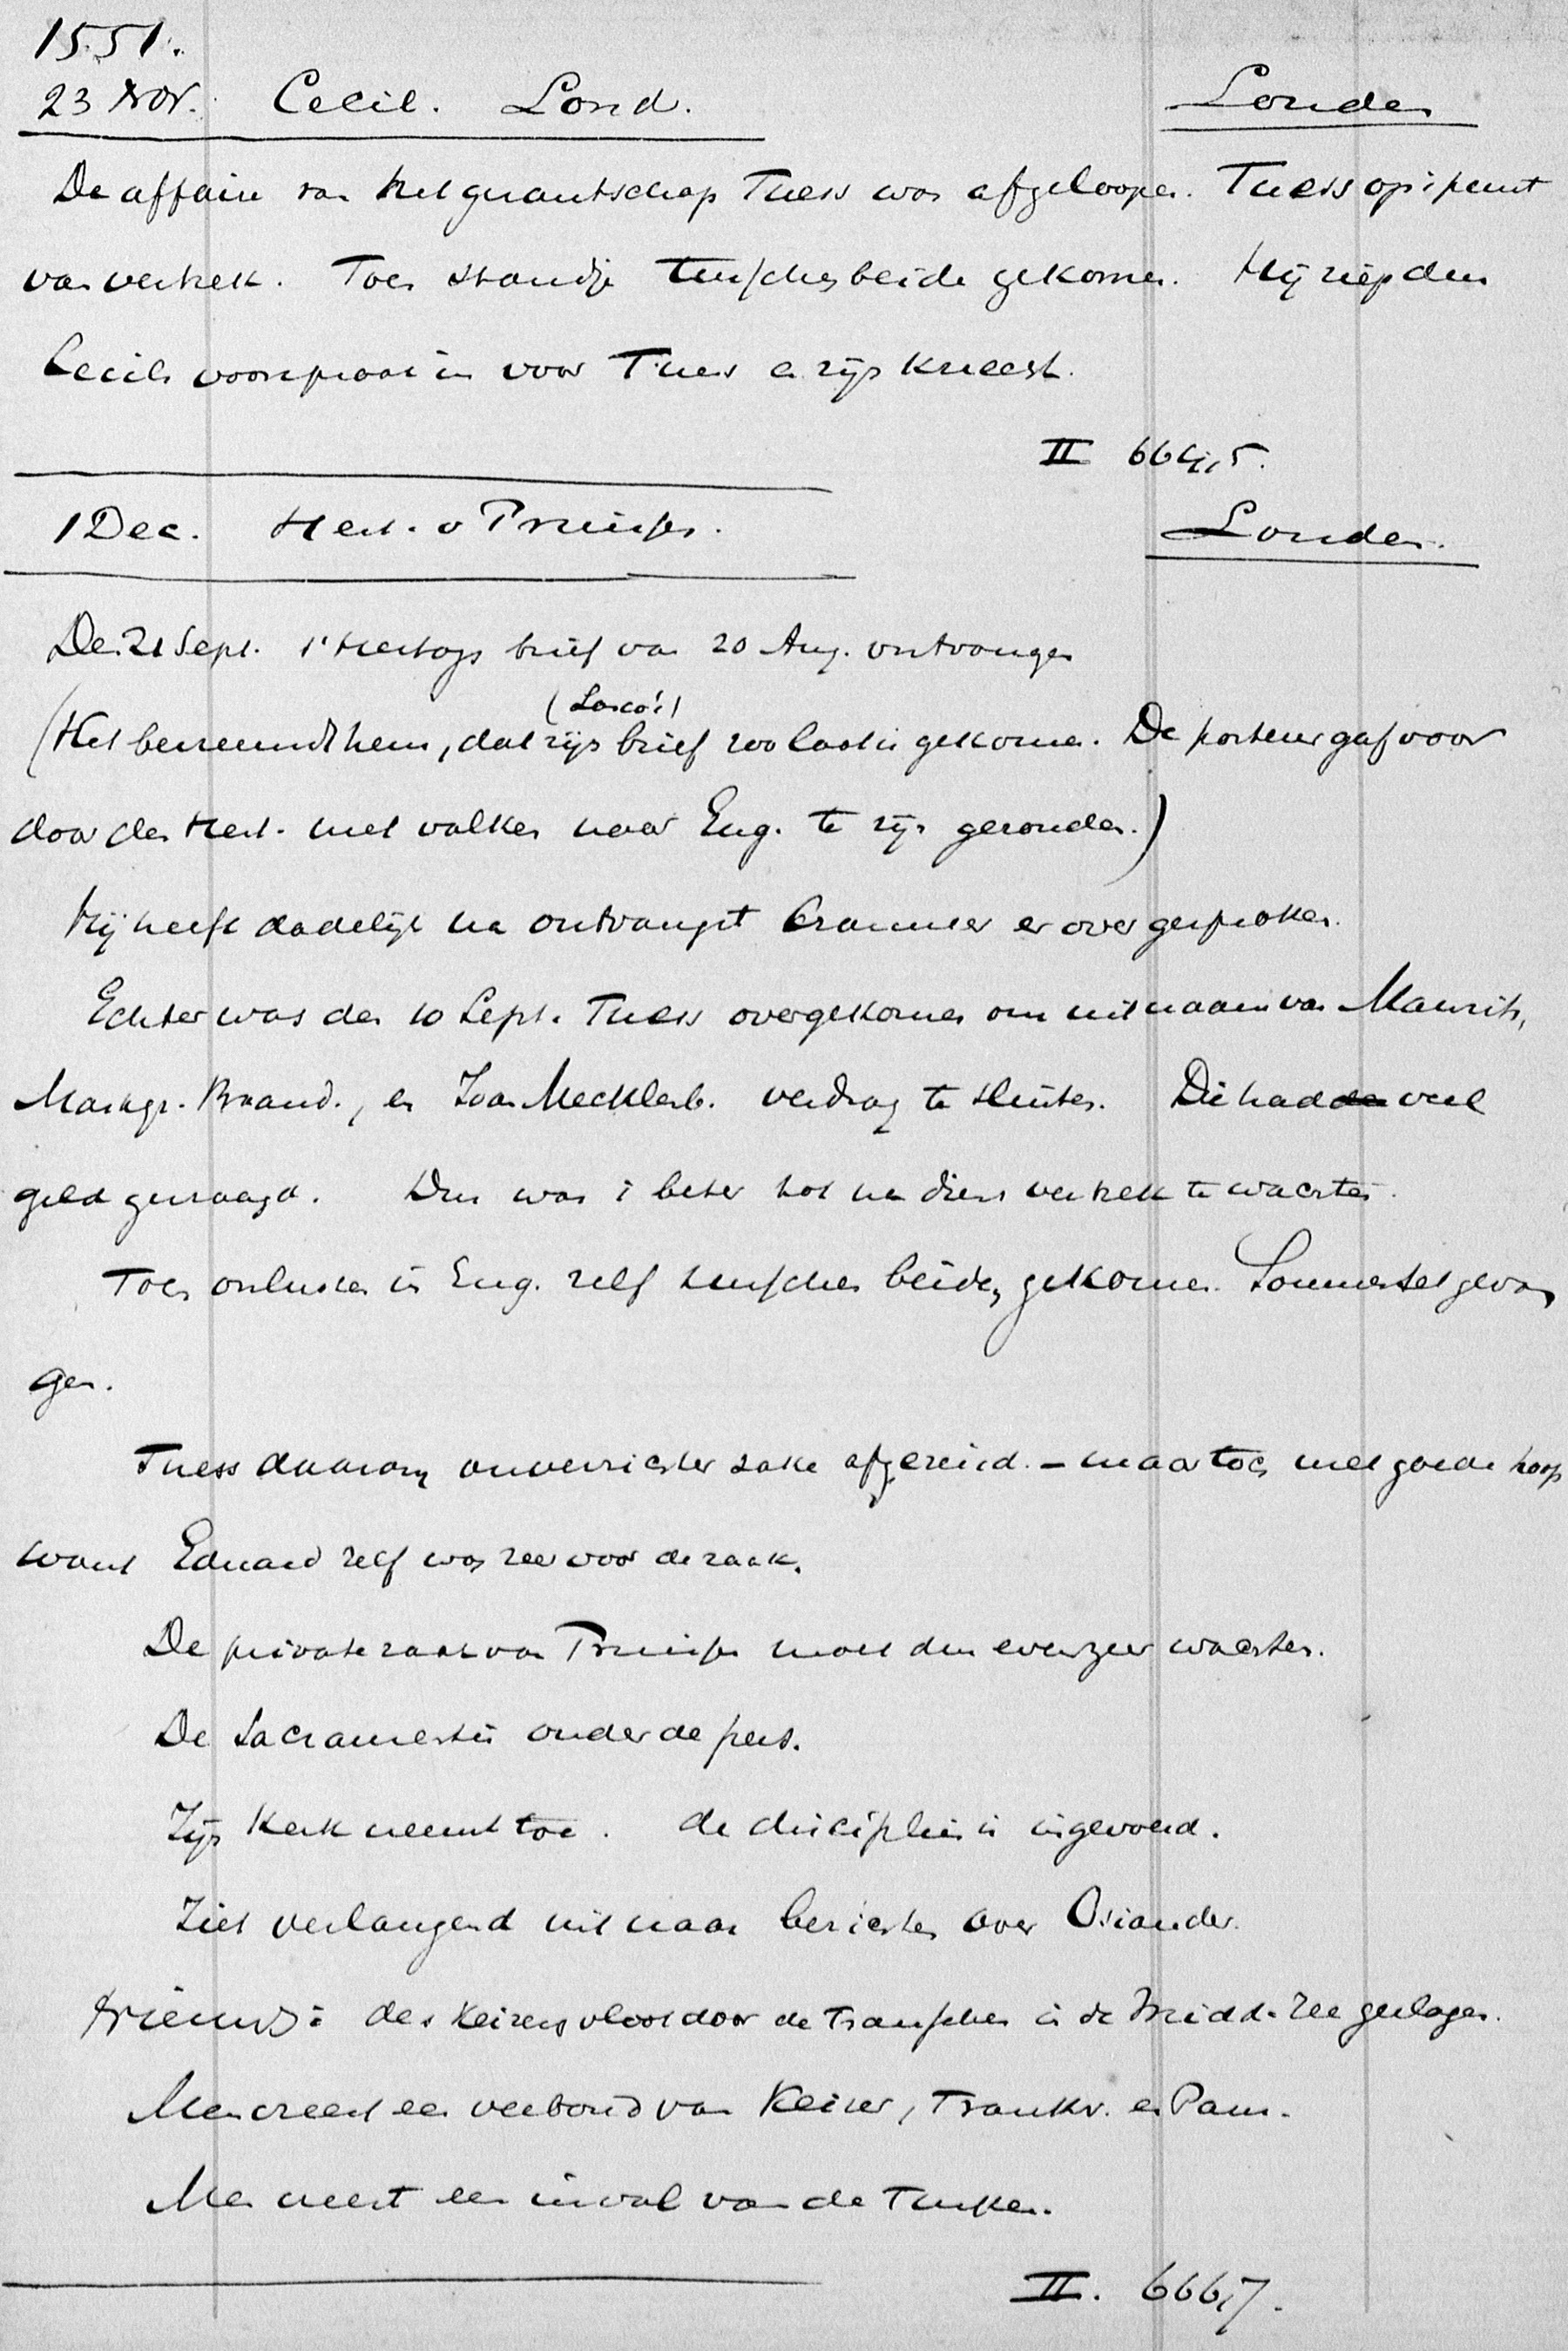 1551.
23 Nov. Cecil. Lond. Londen
De affaire van het gezantschap Tress was afgeloopen. Tress op 't punt
van vertrek. Toen standje tusschenbeide gekomen. Hij riep den
Cecils voorspraak in voor Tress en zijn knecht.
II 664,5.
1 Dec. Hert. v Pruisen. Londen.
Den 21 Sept. 's Hertogs brief van 20 Aug. ontvangen
(Lasco's)
(Het bevreemdt hem, dat zijn brief zoo laat is gekomen. De porteur gaf voor
door den Hert. met valken naar Eng. te zijn gezonden.)
Hij heeft dadelijk na ontvangst Cranmer er over gesproken.
Echter was den 10 Sept. Tress overgekomen om uit naam van Maurits,
Markgr. Brand., en Joan Mecklenb. verdrag te sluiten. Die hadden veel
geld gevraagd. Dus was 't beter tot na diens vertrek te wachten.
Toen onlusten in Eng. zelf tusschen beide gekomen. Sommerset gevan
gen.
Tress daarom onverrichter zake afgereisd. – maar toch met goede hoop
want Eduard zelf was zeer voor de zaak.
De private zaak van Pruisen moet dus evenzeer wachten.
De Sacramentis onder de pers.
Zijn Kerk neemt toe. de discipline is ingevoerd.
Ziet verlangend uit naar berichten over Osiander.
Nieuws: des Keizers vloot door de Franschen in de Midd. Zee geslagen.
Men vreest een verbond van Keizer, Frankr. en Paus.
Men vreest een inval van de Turken.
II. 666,7.